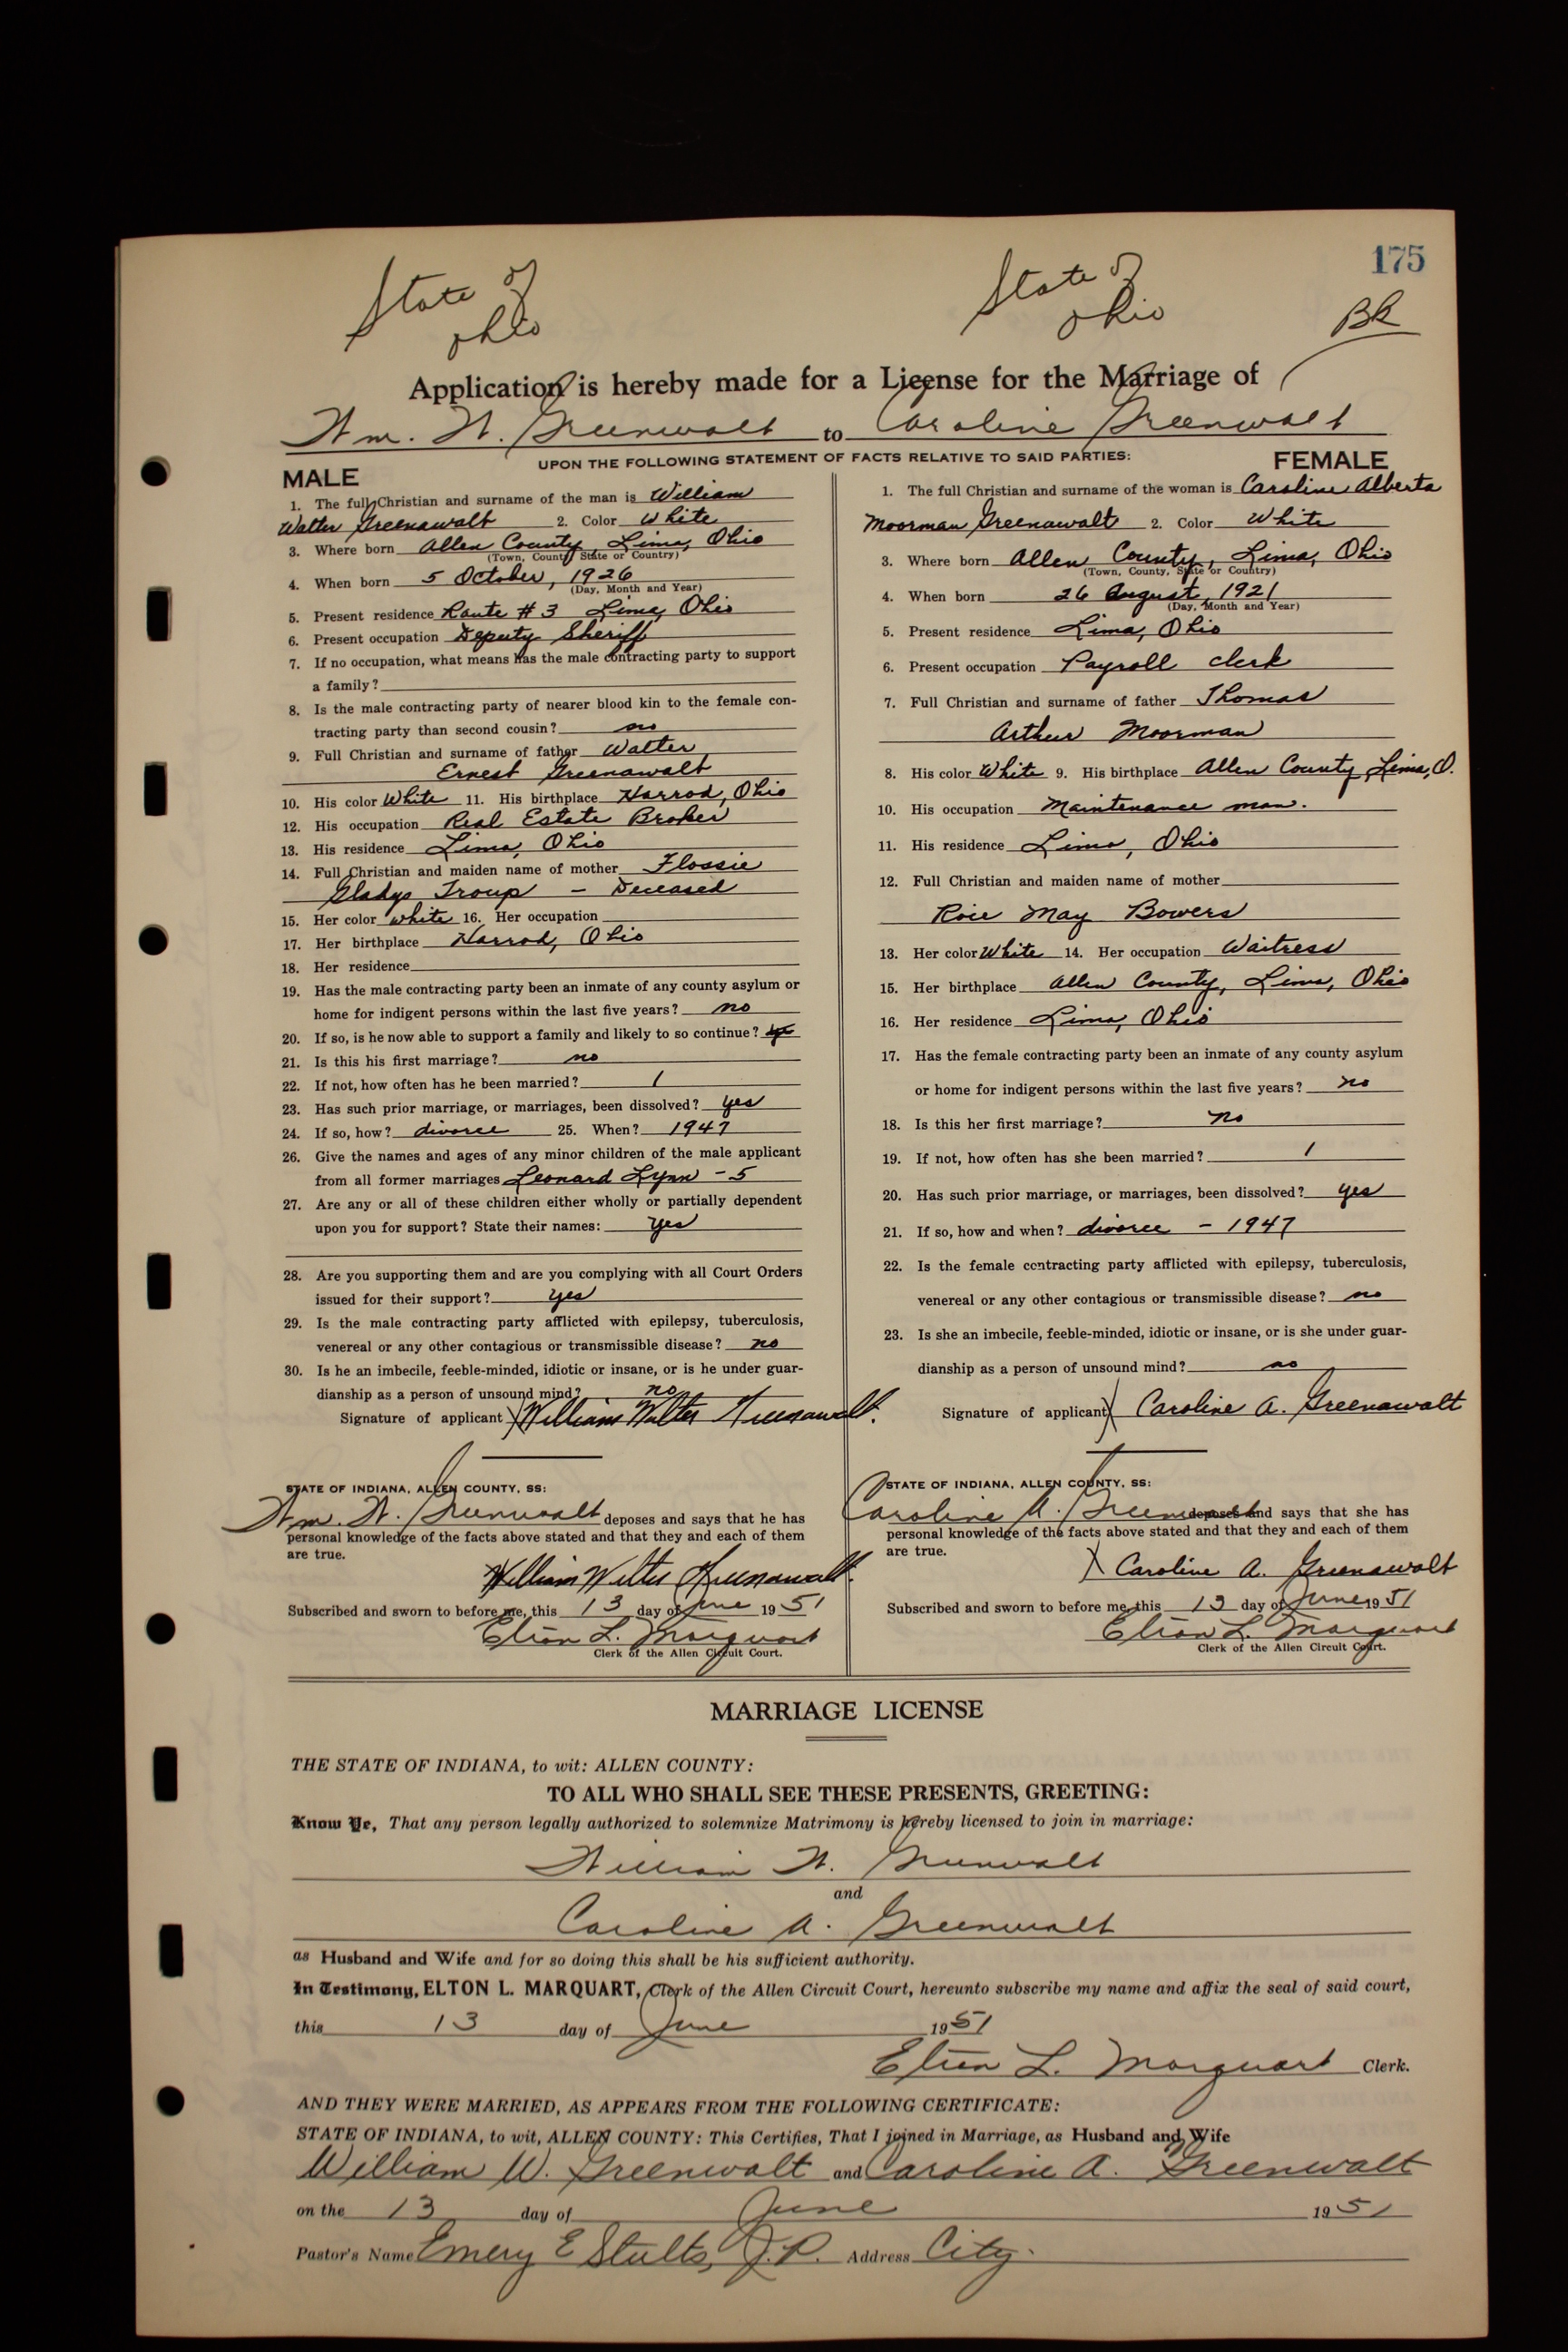 175
State of Ohio
State of Ohio
BR
Application is hereby made for a License for the Marriage of
Wm. W. Greenwalt to Caroline Greenwalt
UPON THE FOLLOWING STATEMENT OF FACTS RELATIVE TO SAID PARTIES:
MALE
1. The full Christian and surname of the man is William
Walter Greenawalt 2. Color White
3. Where born Allen County, Lima, Ohio
(Town, County, State or Country)
4. When born 5 October, 1926
(Day, Month and Year)
5. Present residence Route #3 Lima, Ohio
6. Present occupation Deputy Sheriff
7. If no occupation, what means has the male contracting party to support
a family?
8. Is the male contracting party of nearer blood kin to the female con-
tracting party than second cousin? no
9. Full Christian and surname of father Walter
Ernest Greenawalt
10. His color White 11. His birthplace Harrod, Ohio
12. His occupation Real Estate Broker
13. His residence Lima, Ohio
14. Full Christian and maiden name of mother Flossie
Gladys Troup - Deceased
15. Her color white 16. Her occupation
17. Her birthplace Harrod, Ohio
18. Her residence
19. Has the male contracting party been an inmate of any county asylum or
home for indigent persons within the last five years? no
20. If so, is he now able to support a family and likely to so continue?
21. Is this his first marriage? no
22. If not, how often has he been married? 1
23. Has such prior marriage, or marriages, been dissolved? yes
24. If so, how? divorce 25. When? 1947
26. Give the names and ages of any minor children of the male applicant
from all former marriages Leonard Lynn - 5
27. Are any or all of these children either wholly or partially dependent
upon you for support? State their names: yes
28. Are you supporting them and are you complying with all Court Orders
issued for their support? yes
29. Is the male contracting party afflicted with epilepsy, tuberculosis,
venereal or any other contagious or transmissible disease? no
30. Is he an imbecile, feeble-minded, idiotic or insane, or is he under guar-
dianship as a person of unsound mind? no
Signature of applicant William Walter Greenawalt.
STATE OF INDIANA, ALLEN COUNTY, SS:
Wm. W. Greenwalt deposes and says that he has
personal knowledge of the facts above stated and that they and each of them
are true.
William Walter Greenawalt.
Subscribed and sworn to before me, this 13 day of June 1951
Elton L. Marquart
Clerk of the Allen Circuit Court.
FEMALE
1. The full Christian and surname of the woman is Caroline Alberta
Moorman Greenawalt 2. Color White
3. Where born Allen County, Lima, Ohio
(Town, County, State or Country)
4. When born 26 August, 1921
(Day, Month and Year)
5. Present residence Lima, Ohio
6. Present occupation Payroll clerk
7. Full Christian and surname of father Thomas
Arthur Moorman
8. His color White 9. His birthplace Allen County, Lima, O.
10. His occupation Maintenance man.
11. His residence Lima, Ohio
12. Full Christian and maiden name of mother
May Bowers
13. Her color White 14. Her occupation Waitress
15. Her birthplace Allen County, Lima, Ohio
16. Her residence Lima, Ohio
17. Has the female contracting party been an inmate of any county asylum
or home for indigent persons within the last five years? no
18. Is this her first marriage? no
19. If not, how often has she been married? 1
20. Has such prior marriage, or marriages, been dissolved? yes
21. If so, how and when? divorce - 1947
22. Is the female contracting party afflicted with epilepsy, tuberculosis,
venereal or any other contagious or transmissible disease? no
23. Is she an imbecile, feeble-minded, idiotic or insane, or is she under guar-
dianship as a person of unsound mind? no
Signature of applicant Caroline A. Greenawalt
STATE OF INDIANA, ALLEN COUNTY, SS:
Caroline A. Greenwalt deposes and says that she has
personal knowledge of the facts above stated and that they and each of them
are true.
X Caroline A. Greenawalt
Subscribed and sworn to before me, this 13 day of June 1951
Elton L. Marquart
Clerk of the Allen Circuit Court.
MARRIAGE LICENSE
THE STATE OF INDIANA, to wit: ALLEN COUNTY:
TO ALL WHO SHALL SEE THESE PRESENTS, GREETING:
Know Ye, That any person legally authorized to solemnize Matrimony is hereby licensed to join in marriage:
William W. Greenwalt
and
Caroline A. Greenwalt
as Husband and Wife and for so doing this shall be his sufficient authority.
In Testimony, ELTON L. MARQUART, Clerk of the Allen Circuit Court, hereunto subscribe my name and affix the seal of said court,
this 13 day of June 1951
Elton L. Marquart Clerk.
AND THEY WERE MARRIED, AS APPEARS FROM THE FOLLOWING CERTIFICATE:
STATE OF INDIANA, to wit, ALLEN COUNTY: This Certifies, That I joined in Marriage, as Husband and Wife
William W. Greenwalt and Caroline A. Greenwalt
on the 13 day of June 1951
Pastor's Name Emery E Stults, J.P. Address City.